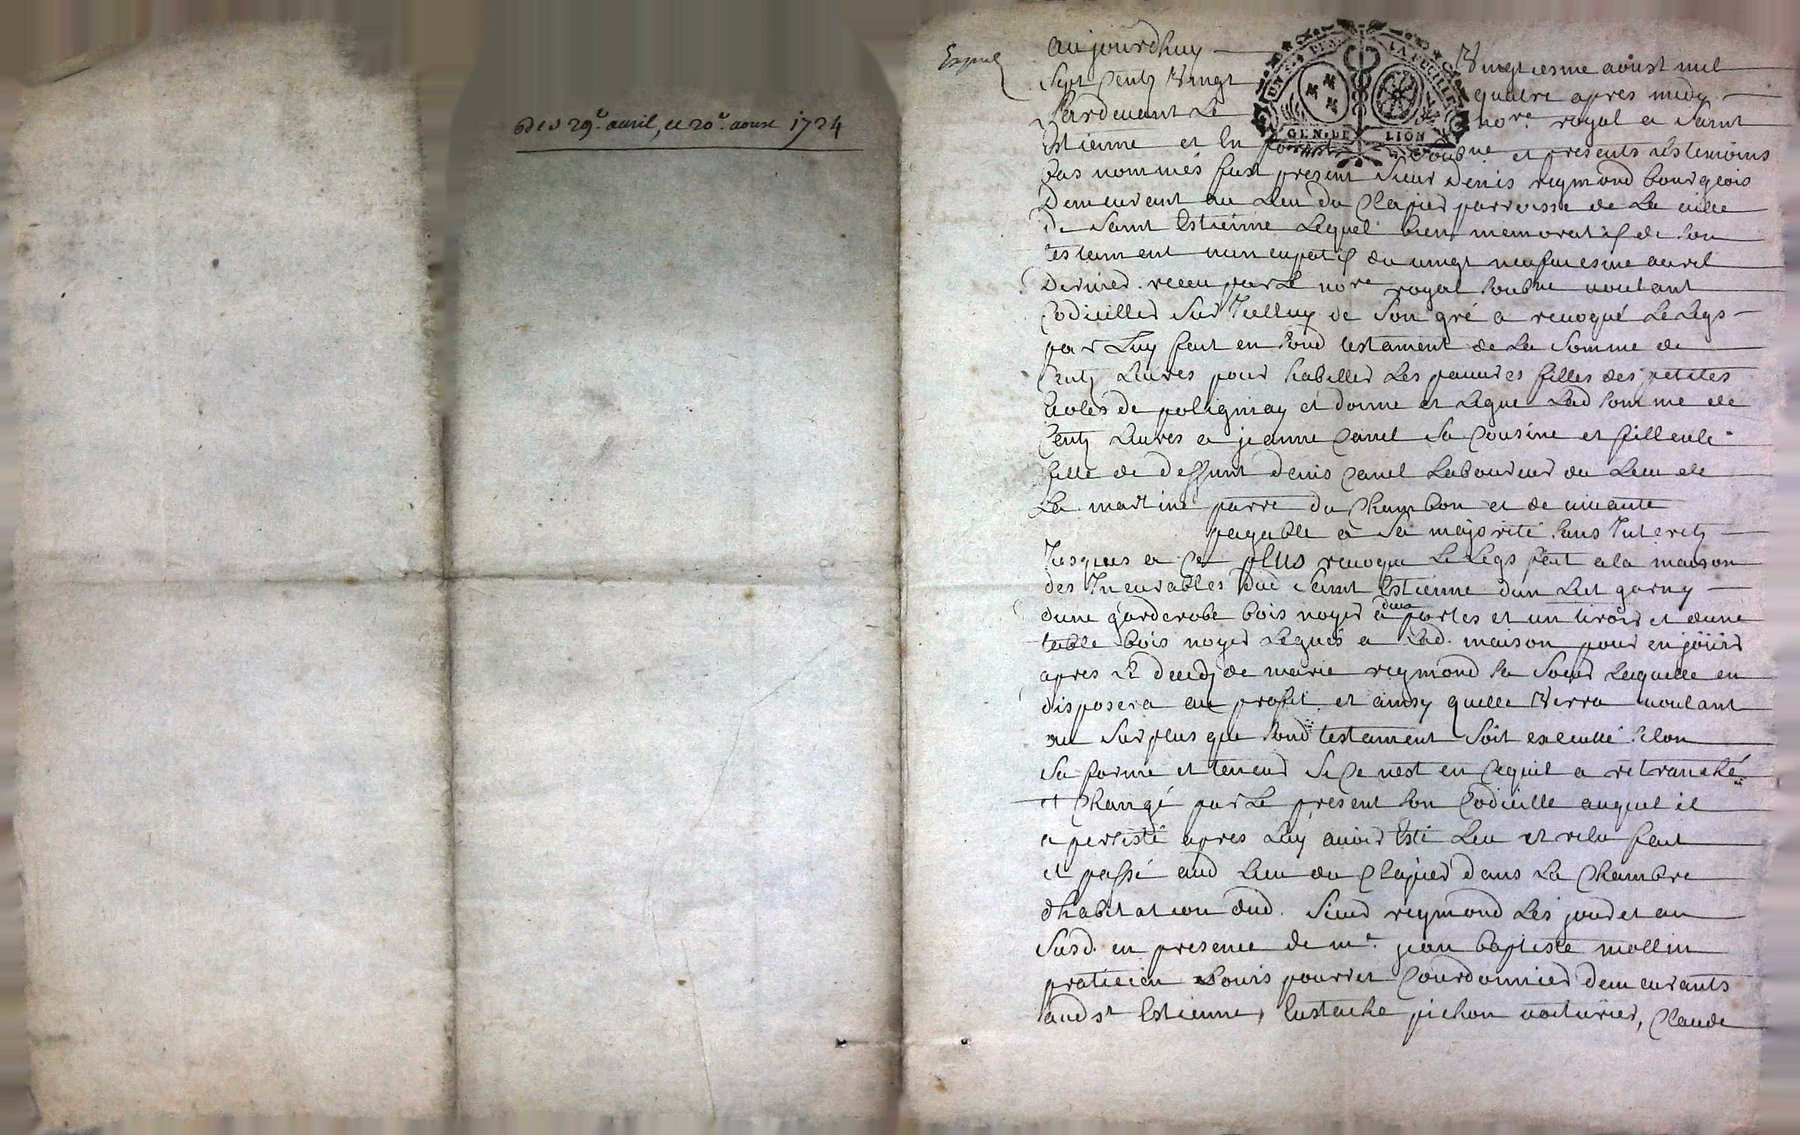 des 29e. auril, et 20e. aoust 1724
Expué
aujourdhuy vingtiesme aoust mil
Sept Centz Vingt quatre apres midy
Pardeuant Le nore. royal a Saint
Estienne et En soubne et presents tesmoins
bas nommés fust present Sieur denis reymond bourgeois
Demeurant au Lieu du Clapier parroisse de La uille
de Saint Estienne Lequel bien memoratif de son
testament nuncupatif du uingt neufuiesme auril
dernier receu par Le nore royal soubne uoulant
Codiciller Sur Icelluy de Son gré a reuoqué Le Legs
par Luy fait en sond testament de La Somme de
Centz Liures pour habiller Les pauures filles des petites
Ecoles de polignay et donne et Legue Lad somme de
Centz Liures a jeanne Canel Sa Cousine et filleule
fille de deffunt denis Canel Laboureur du Lieu de
La martine parre du Chambon et de uiuante
payable a Sa majorité sans Interetz
Jusques a Ce plus reuoque Le Legs fait a la maison
des Incurables dud Saint Estienne dun Lit garny
dune garderobe bois noyer a deux portes et un tiroir et dune
table bois noyer Legués a Lad. maison pour en joüir
apres Le decedz de marie reymond sa Soeur Laquelle en
disposera au profit et ainsy quelle Verra uoulant
au Surplus que sond testament Soit executté selon
Sa forme et teneur Si Ce nest en Cequil a retranché
et Changé par Le present son Codicille auquel il
a persisté apres Luy auoir Esté Leu et releu fait
et passé aud Lieu du Clapier dans La Chambre
dhabitation dud. Sieur reymond Les jour et an
Susd. en presence de me. jean baptiste mollin
praticien Louis pourret Courdonnier demeurants
aud st Estienne, Eustache pichon uoiturier, Claude
UN S. DEN. LA FEUILLE
GEN. DE LION